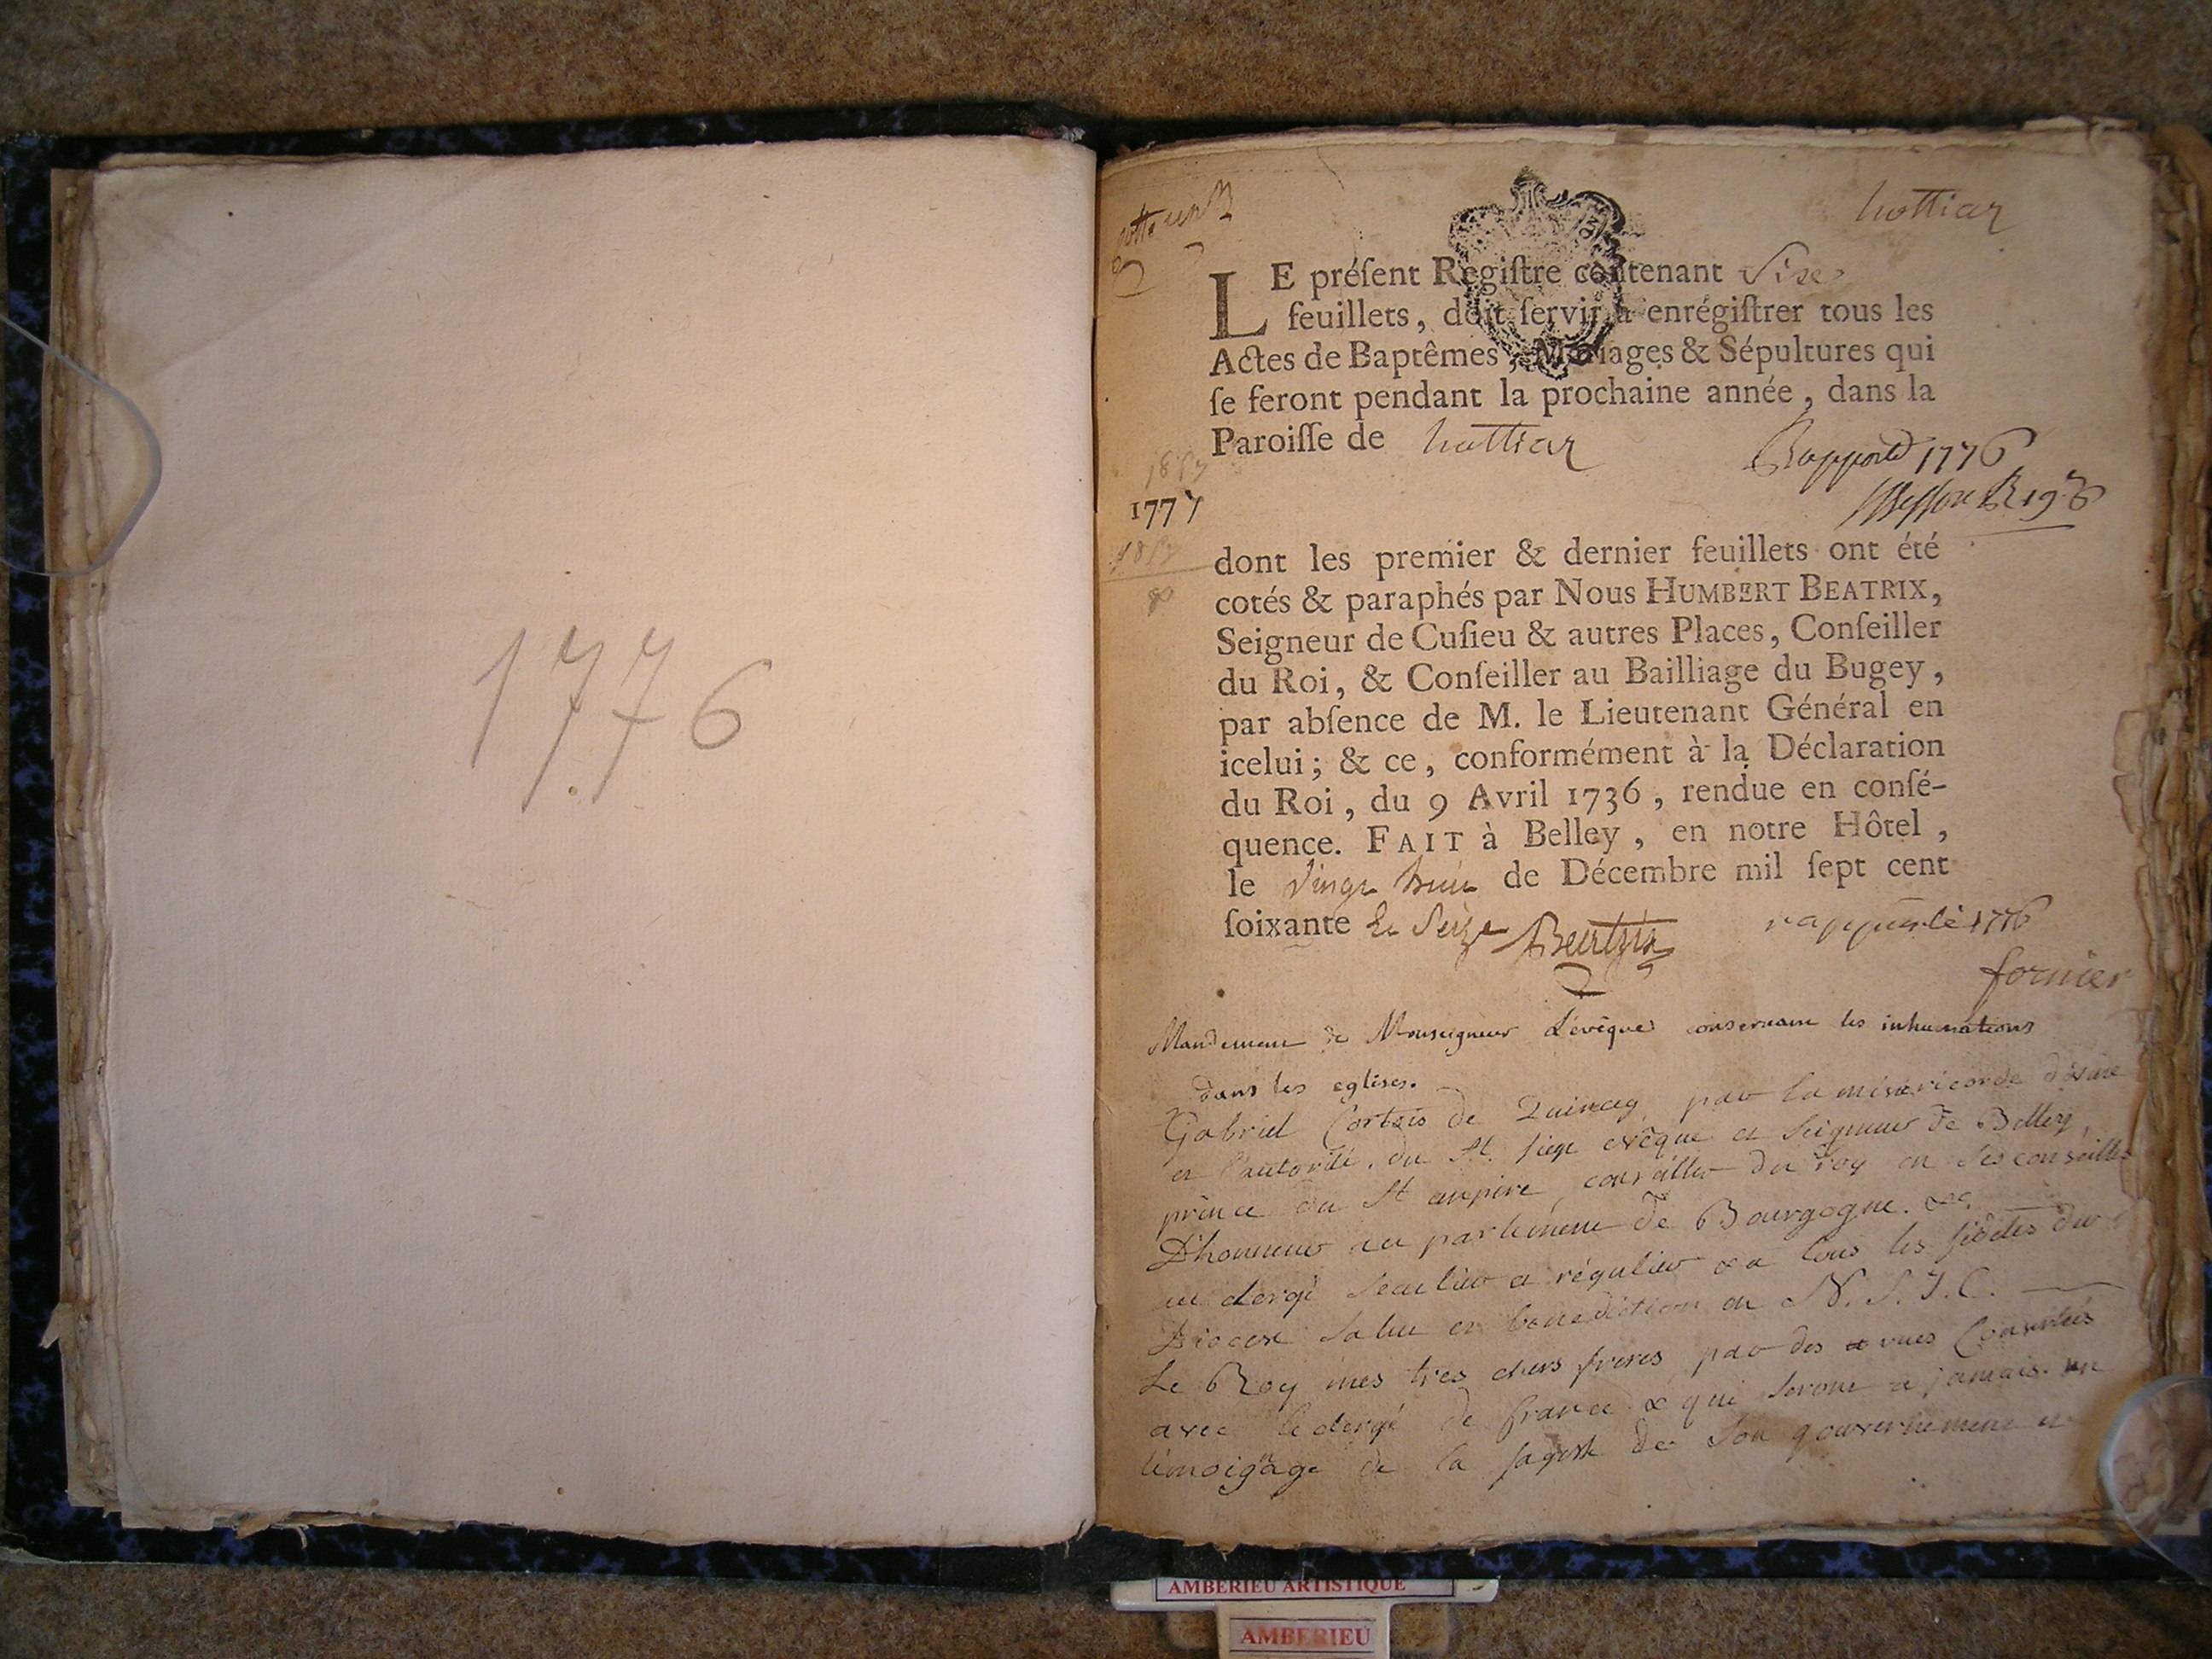 1776
hottiar
LE préſent Regiſtre contenant Sixe
feuillets, doit ſervir à enrégiſtrer tous les
Actes de Baptêmes, Mariages & Sépultures qui
ſe feront pendant la prochaine année, dans la
Paroiſſe de hottiar
Rapporté 1776
1777
dont les premier & dernier feuillets ont été
cotés & paraphés par Nous HUMBERT BEATRIX,
Seigneur de Cuſieu & autres Places, Conſeiller
du Roi, & Conſeiller au Bailliage du Bugey,
par abſence de M. le Lieutenant Général en
icelui; & ce, conformément à la Déclaration
du Roi, du 9 Avril 1736, rendue en conſé-
quence. FAIT à Belley, en notre Hôtel,
le vingt huit de Décembre mil ſept cent
ſoixante & Seize Beatrix rapporté 1776
fornier
Mandement de Monseigneur L'évêque conservant les inhumations
dans les eglises.
Gabriel Cortois de Quincey, par la miséricorde divine
et l'autorité du St. siege evêque et Seigneur de Belley,
prince du St empire, conseiller du roy en ses conseilles
D'honneur au parlement de Bourgogne. &c.
au clergé seculier et régulier & a tous les fidèles du
Diocese Salut et benediction en N. S. J. C.
Le Roy mes tres chers freres par des vues Concertées
avec le clergé de france & qui seront a jamais un
témoignage de la sagesse de son gouvernement et
AMBERIEU ARTISTIQUE
AMBERIEU